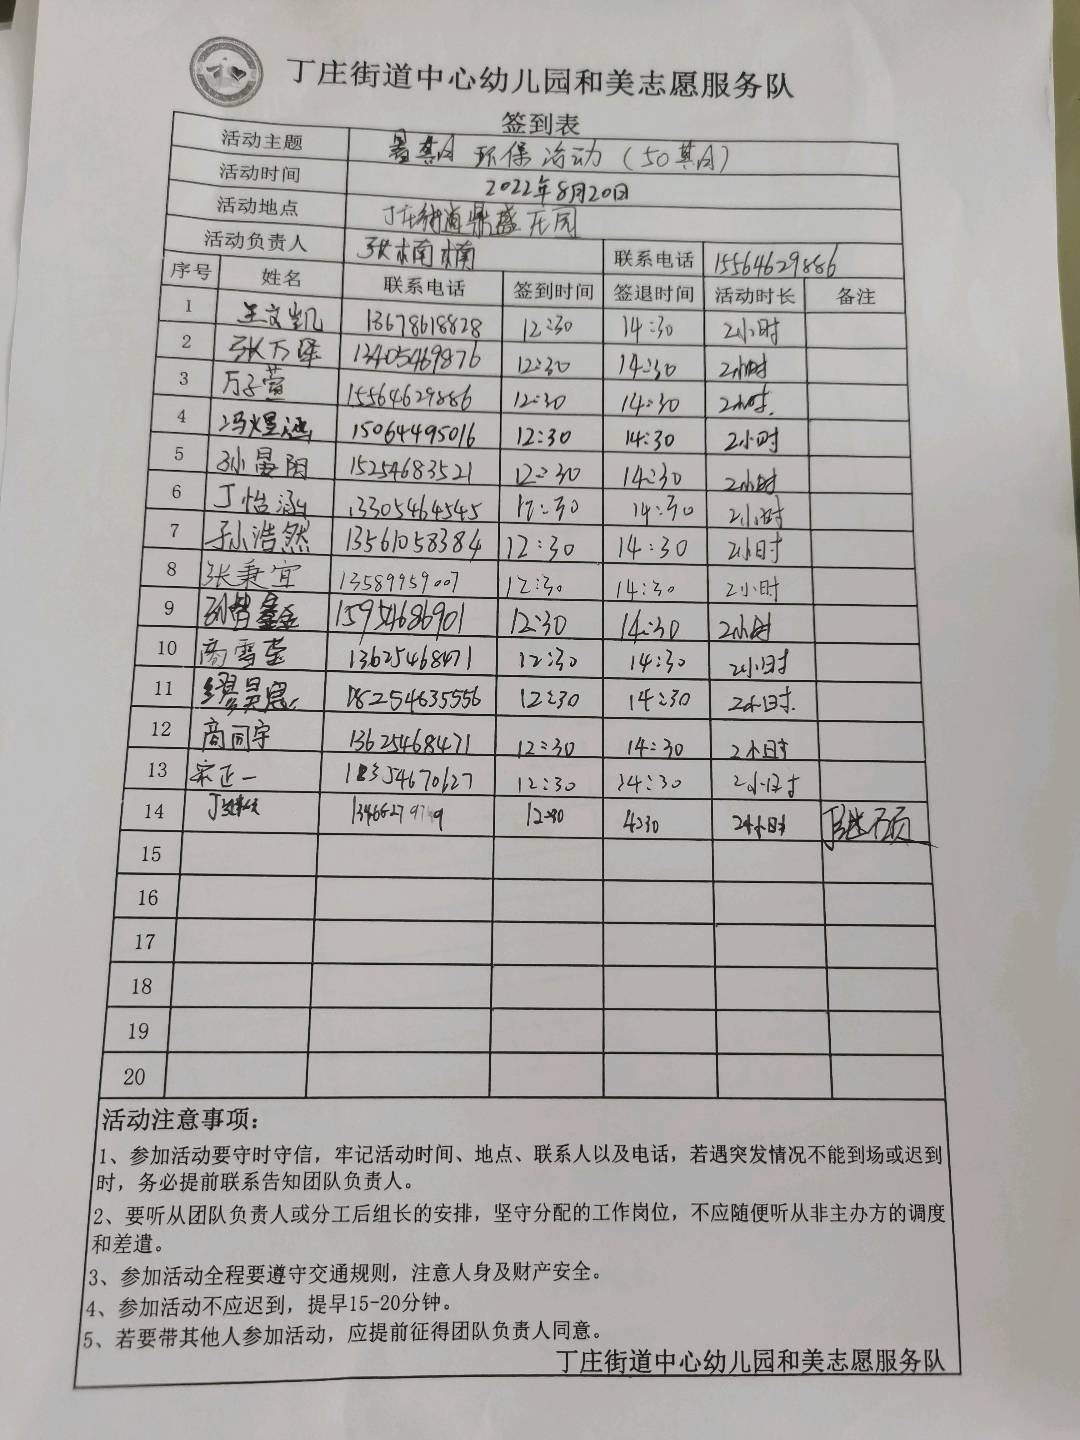 丁庄街道中心幼儿园和美志愿服务队
签到表
活动主题 暑其月 环保活动（50其月）
活动时间 2022年8月20日
活动地点 丁庄街道鼎盛庄园
活动负责人 张楠楠 联系电话 15564629886
序号 姓名 联系电话 签到时间 签退时间 活动时长 备注
1 王文凯 13678618828 12:30 14:30 2小时
2 张万泽 13405469876 12:30 14:30 2小时
3 万子萱 15564629886 12:30 14:30 2小时.
4 冯煜涵 15064495016 12:30 14:30 2小时
5 孙晏阳 15254683521 12:30 14:30 2小时
6 丁怡涵 13305464545 12:30 14:30 2小时
7 孙浩然 13561058384 12:30 14:30 2小时
8 张秉宜 13589959007 12:30 14:30 2小时
9 孙智鑫 15954686901 12:30 14:30 2小时
10 商雪莹 13625468471 12:30 14:30 2小时
11 12:30 14:30 2小时.
12 商同宇 13625468471 12:30 14:30 2小时
13 宋正一 12:30 14:30 2小时
14 12:30 4:30 2小时 丁继硕
15
16
17
18
19
20
活动注意事项：
1、参加活动要守时守信，牢记活动时间、地点、联系人以及电话，若遇突发情况不能到场或迟到
时，务必提前联系告知团队负责人。
2、要听从团队负责人或分工后组长的安排，坚守分配的工作岗位，不应随便听从非主办方的调度
和差遣。
3、参加活动全程要遵守交通规则，注意人身及财产安全。
4、参加活动不应迟到，提早15-20分钟。
5、若要带其他人参加活动，应提前征得团队负责人同意。
丁庄街道中心幼儿园和美志愿服务队